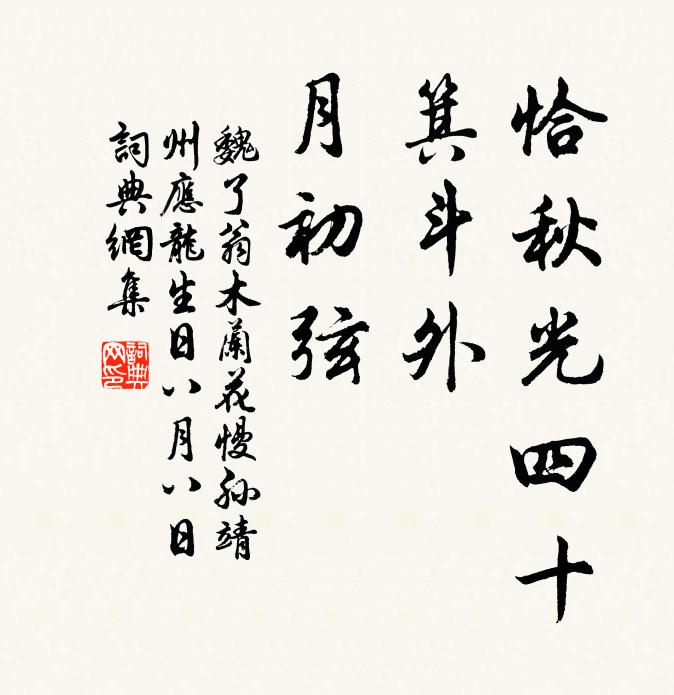 恰秋光四十
箕斗外
月初弦
魏了翁木蘭花慢孙靖
州應龍生日八月八日
詞典網集
詞典
网印